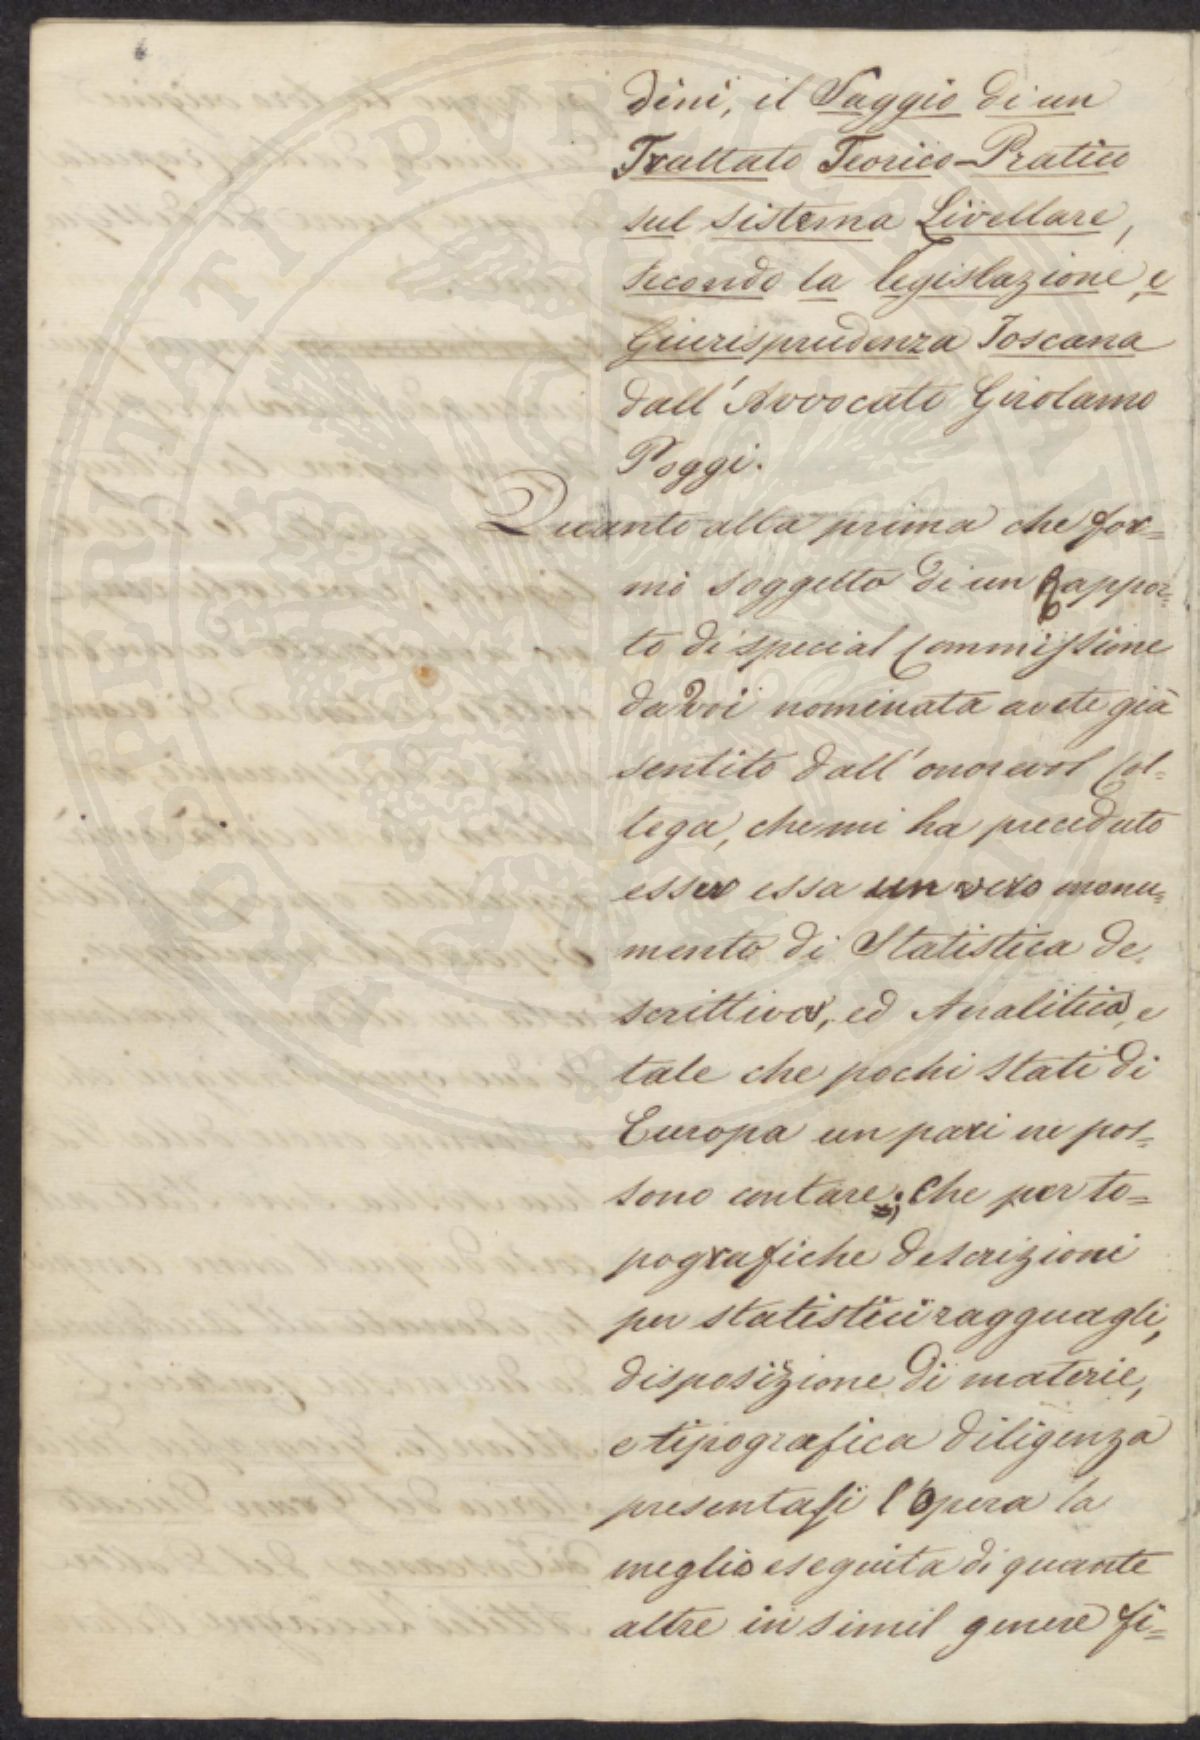 dini, il Saggio di un
Trattato Teorico-Pratico
sul sistema Livellare,
secondo la legislazione, e
Giurisprudenza Toscana
dall'Avvocato Girolamo
Poggi.
Quanto alla prima che for=
mò soggetto di un Rappor=
to di special Commissione
da voi nominata avete già
sentito dall'onorevol Col=
lega, che mi ha preceduto
esser essa un vero monu=
mento di Statistica de
scrittiva, ed Analitica, e
tale che pochi stati di
Europa un pari ne pos=
sono contare; Che per to=
pografiche descrizioni
per statistici ragguagli,
disposizione di materie,
e tipografica diligenza
presentasi l'Opera la
meglio eseguita di quante
altre in simil genere fi=